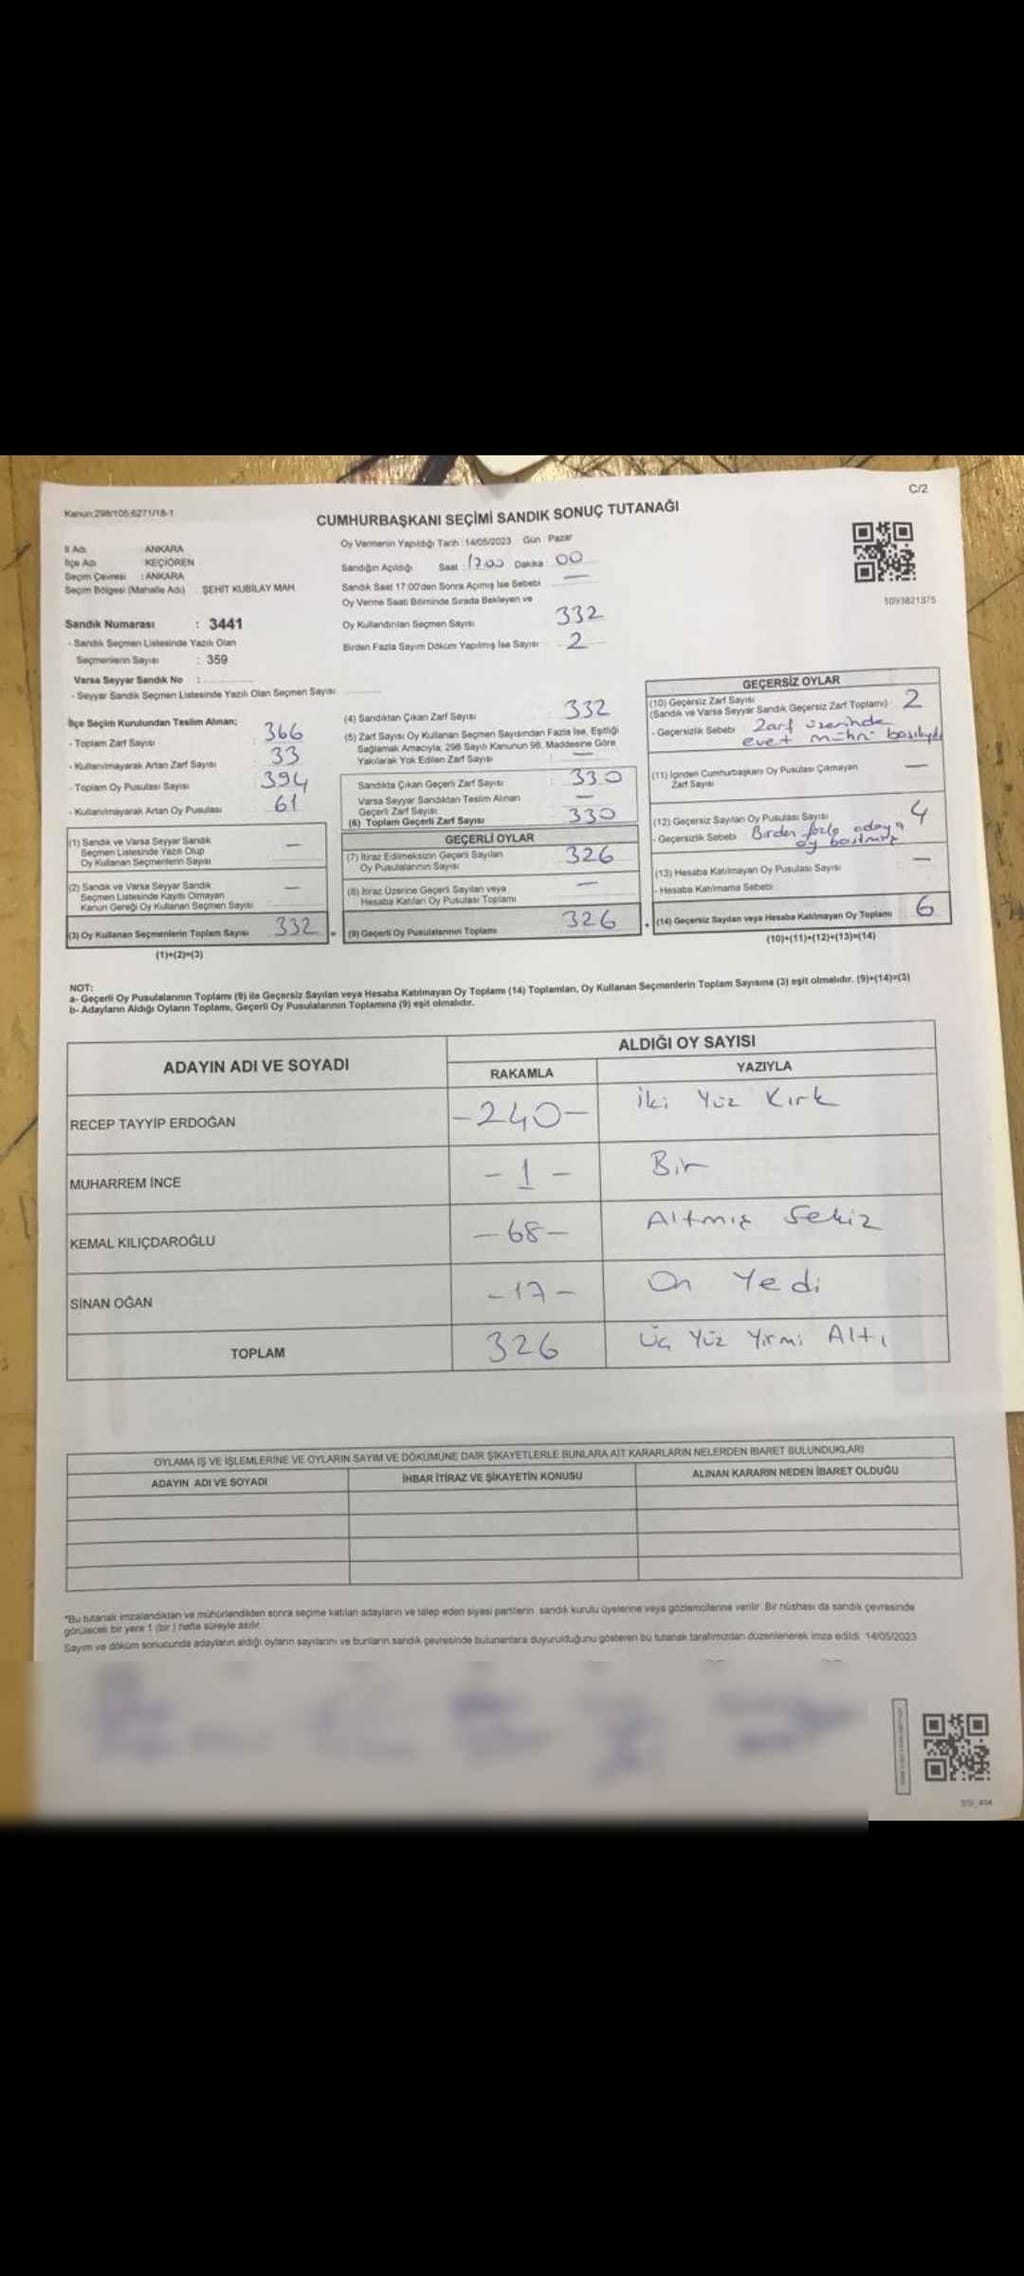 C/2
Kanun:298/105 6271/18-1
CUMHURBAŞKANI SEÇİMİ SANDIK SONUÇ TUTANAĞI
İl Adı : ANKARA
İlçe Adı : KEÇİÖREN
Seçim Çevresi : ANKARA
Seçim Bölgesi (Mahalle Adı) : ŞEHİT KUBİLAY MAH.
Sandık Numarası : 3441
- Sandık Seçmen Listesinde Yazılı Olan
Seçmenlerin Sayısı : 359
Varsa Seyyar Sandık No :
- Seyyar Sandık Seçmen Listesinde Yazılı Olan Seçmen Sayısı
Oy Vermenin Yapıldığı Tarih :14/05/2023 Gün Pazar
Sandığın Açıldığı Saat 17.00 Dakika 00
Sandık Saat 17:00'den Sonra Açımış İse Sebebi —
Oy Verme Saati Bitiminde Sırada Bekleyen ve
Oy Kullandırılan Seçmen Sayısı 332
Birden Fazla Sayım Döküm Yapılmış İse Sayısı 2
1093821375
İlçe Seçim Kurulundan Teslim Alınan;
- Toplam Zarf Sayısı 366
- Kullanılmayarak Artan Zarf Sayısı 33
- Toplam Oy Pusulası Sayısı 394
- Kullanılmayarak Artan Oy Pusulası 61
(1) Sandık ve Varsa Seyyar Sandık
Seçmen Listesinde Yazılı Olup
Oy Kullanan Seçmenlerin Sayısı —
(2) Sandık ve Varsa Seyyar Sandık
Seçmen Listesinde Kayıtlı Olmayan
Kanun Gereği Oy Kullanan Seçmen Sayısı —
(3) Oy Kullanan Seçmenlerin Toplam Sayısı 332 =
(1)+(2)=(3)
(4) Sandıktan Çıkan Zarf Sayısı 332
(5) Zarf Sayısı Oy Kullanan Seçmen Sayısından Fazla İse, Eşitliği
Sağlamak Amacıyla; 298 Sayılı Kanunun 98. Maddesine Göre
Yakılarak Yok Edilen Zarf Sayısı —
Sandıkta Çıkan Geçerli Zarf Sayısı 330
Varsa Seyyar Sandıktan Teslim Alınan
Geçerli Zarf Sayısı —
(6) Toplam Geçerli Zarf Sayısı 330
GEÇERLİ OYLAR
(7) İtiraz Edilmeksizin Geçerli Sayılan
Oy Pusulalarının Sayısı 326
(8) İtiraz Üzerine Geçerli Sayılan veya
Hesaba Katılan Oy Pusulası Toplamı —
(9) Geçerli Oy Pusulalarının Toplamı 326 +
GEÇERSİZ OYLAR
(10) Geçersiz Zarf Sayısı
(Sandık ve Varsa Seyyar Sandık Geçersiz Zarf Toplamı) 2
- Geçersizlik Sebebi Zarf üzerinde
evet mührü basılıydı
(11) İçinden Cumhurbaşkanı Oy Pusulası Çıkmayan
Zarf Sayısı —
(12) Geçersiz Sayılan Oy Pusulası Sayısı 4
- Geçersizlik Sebebi Birden fazla adaya
oy basılmış
(13) Hesaba Katılmayan Oy Pusulası Sayısı —
- Hesaba Katılmama Sebebi
(14) Geçersiz Sayılan veya Hesaba Katılmayan Oy Toplamı 6
(10)+(11)+(12)+(13)=(14)
NOT:
a- Geçerli Oy Pusulalarının Toplamı (9) ile Geçersiz Sayılan veya Hesaba Katılmayan Oy Toplamı (14) Toplamları, Oy Kullanan Seçmenlerin Toplam Sayısına (3) eşit olmalıdır. (9)+(14)=(3)
b- Adayların Aldığı Oyların Toplamı, Geçerli Oy Pusulalarının Toplamına (9) eşit olmalıdır.
ADAYIN ADI VE SOYADI
ALDIĞI OY SAYISI
RAKAMLA YAZIYLA
RECEP TAYYİP ERDOĞAN -240- İki Yüz Kırk
MUHARREM İNCE -1- Bir
KEMAL KILIÇDAROĞLU -68- Altmış Sekiz
SİNAN OĞAN -17- On Yedi
TOPLAM 326 Üç Yüz Yirmi Altı
OYLAMA İŞ VE İŞLEMLERİNE VE OYLARIN SAYIM VE DÖKÜMÜNE DAİR ŞİKAYETLERLE BUNLARA AİT KARARLARIN NELERDEN İBARET BULUNDUKLARI
ADAYIN ADI VE SOYADI İHBAR İTİRAZ VE ŞİKAYETİN KONUSU ALINAN KARARIN NEDEN İBARET OLDUĞU
*Bu tutanak imzalandıktan ve mühürlendikten sonra seçime katılan adayların ve talep eden siyasi partilerin sandık kurulu üyelerine veya gözlemcilerine verilir. Bir nüshası da sandık çevresinde
görülecek bir yere 1 (bir ) hafta süreyle asılır.
Sayım ve döküm sonucunda adayların aldığı oyların sayılarını ve bunların sandık çevresinde bulunanlara duyurulduğunu gösteren bu tutanak tarafımızdan düzenlenerek imza edildi. 14/05/2023